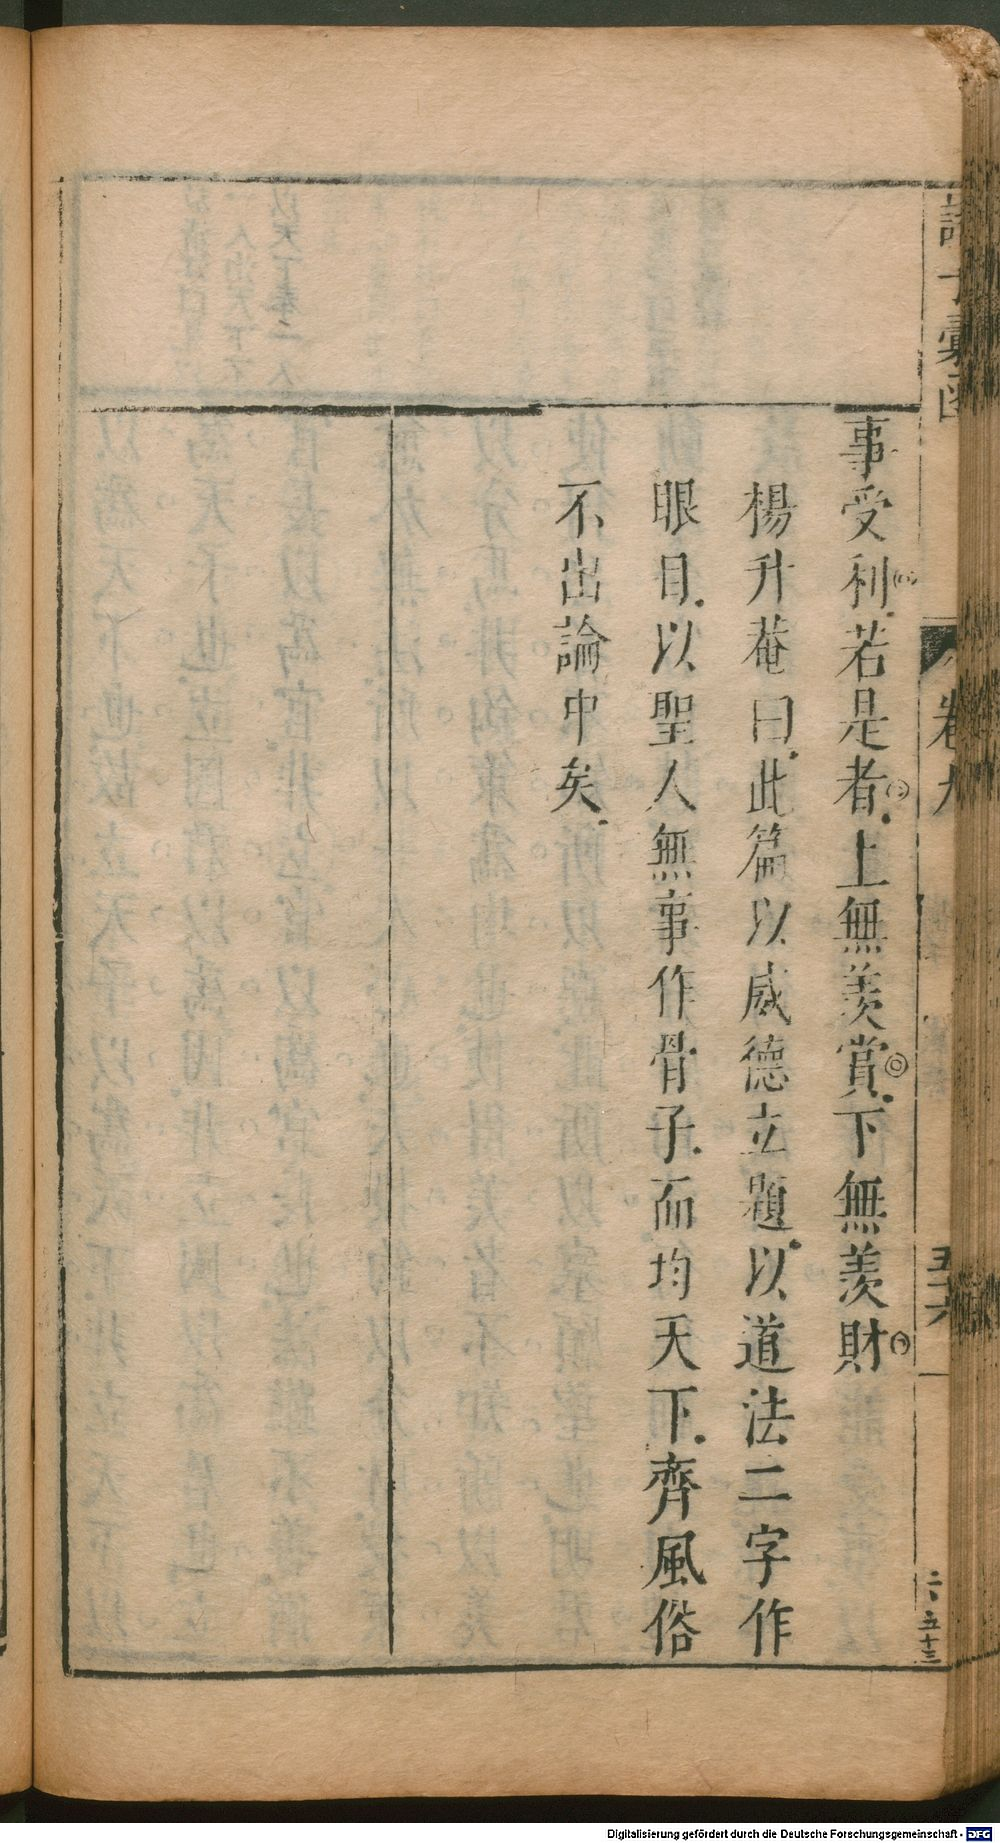 諸子彙函
卷九
五十六
二、五十三
事受利若是者上無羨賞下無羨財
楊升菴曰此篇以威德立題以道法二字作
眼目以聖人無事作骨子而均天下齊風俗
不出論中矣
Digitalisierung gefördert durch die Deutsche Forschungsgemeinschaft - DFG